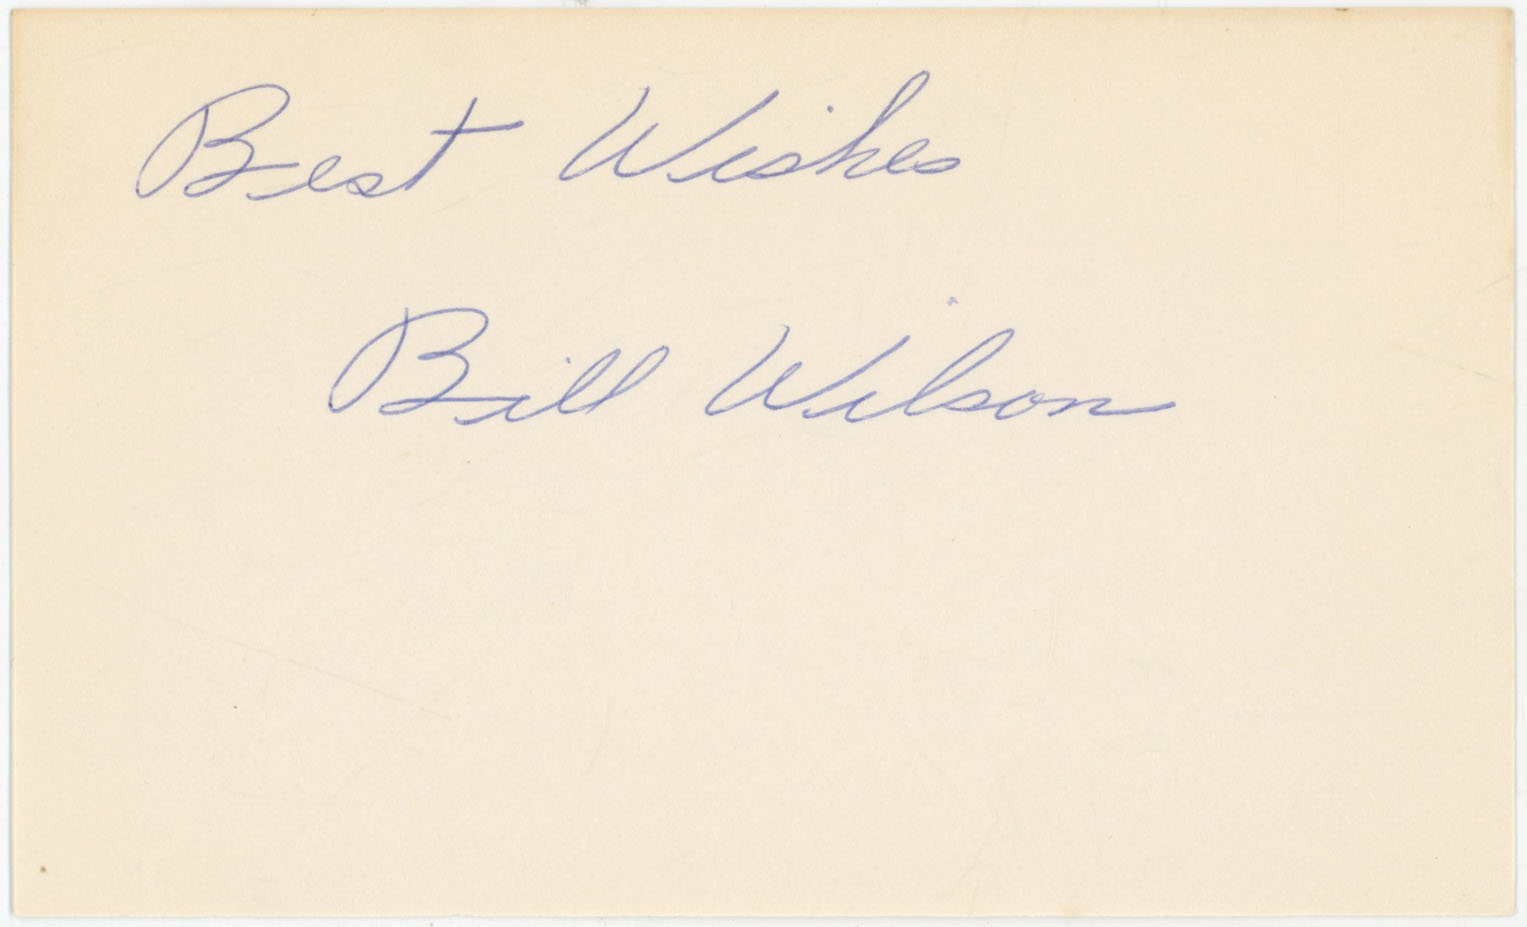 Best Wishes
Bill Wilson